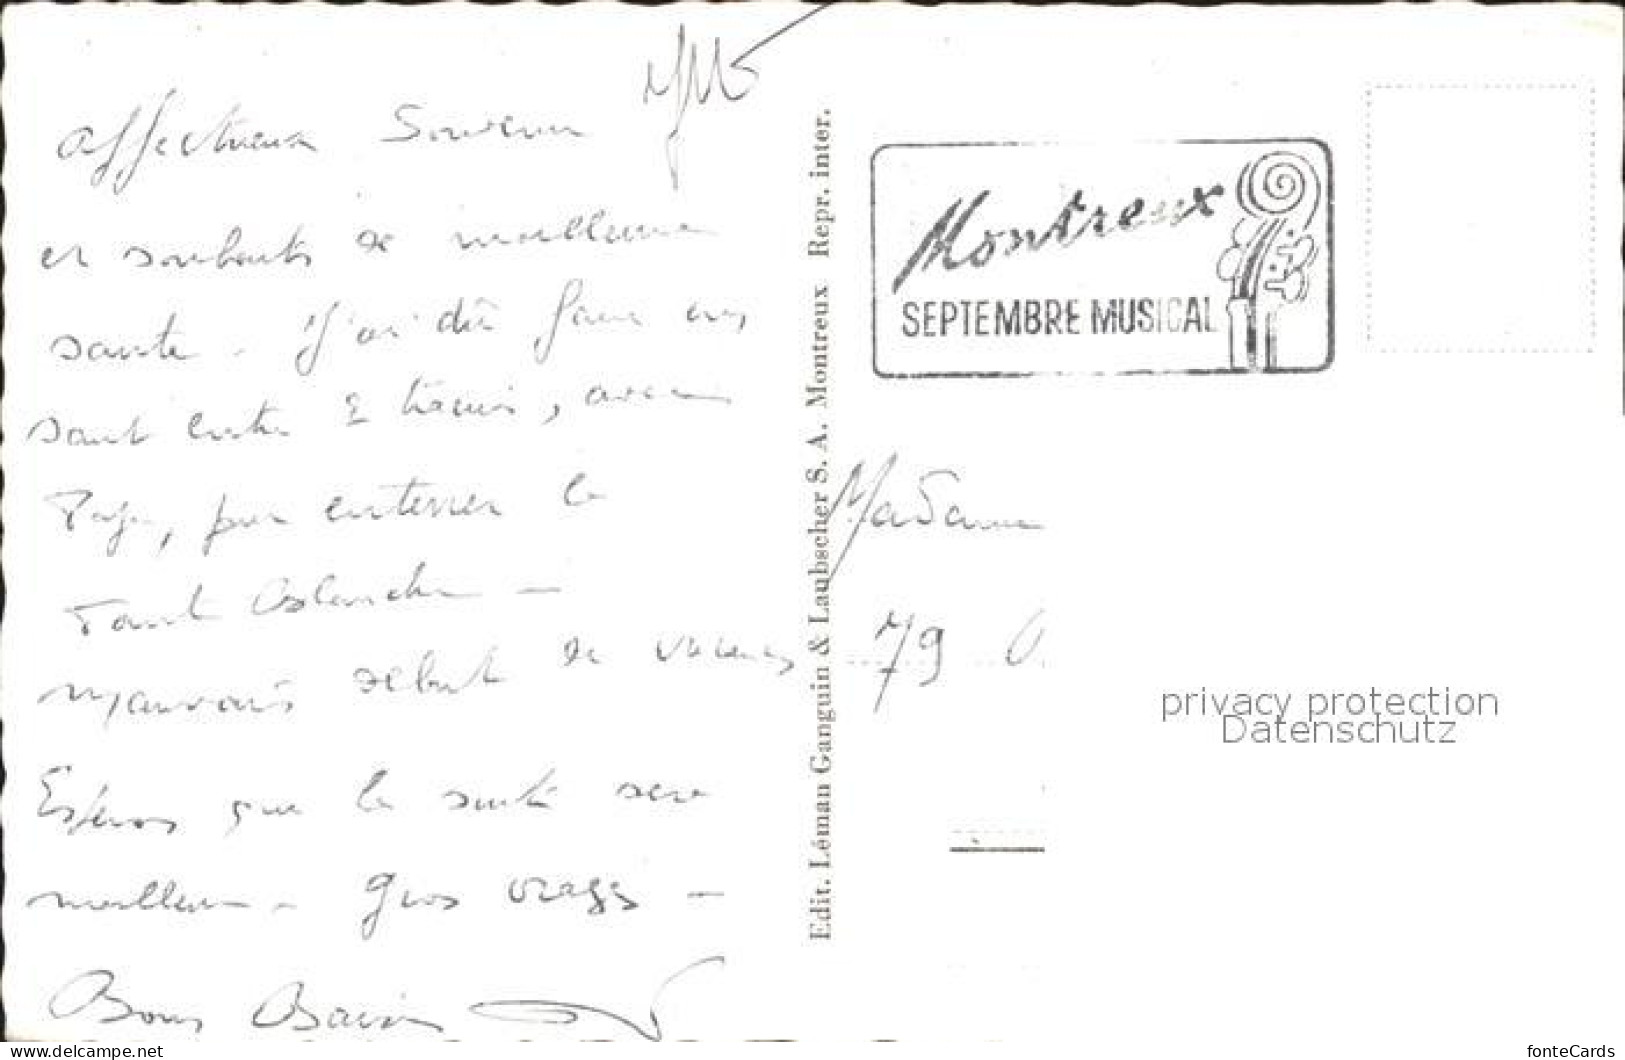 Affectueux Souvenir
et souhaits de meilleure
santé - J'ai dû faire un
saut entre 2 trains, avec
Papa, pour enterrer la
Tante Blanche -
Mauvais début de vacances
Espérons que la suite sera
meilleure - Gros orages -
Bons Baisers
Edit. Léman Ganguin & Laubscher S. A. Montreux Repr. inter.
Montreux
SEPTEMBRE MUSICAL
Madame
79
privacy protection
Datenschutz
www.delcampe.net
fonteCards